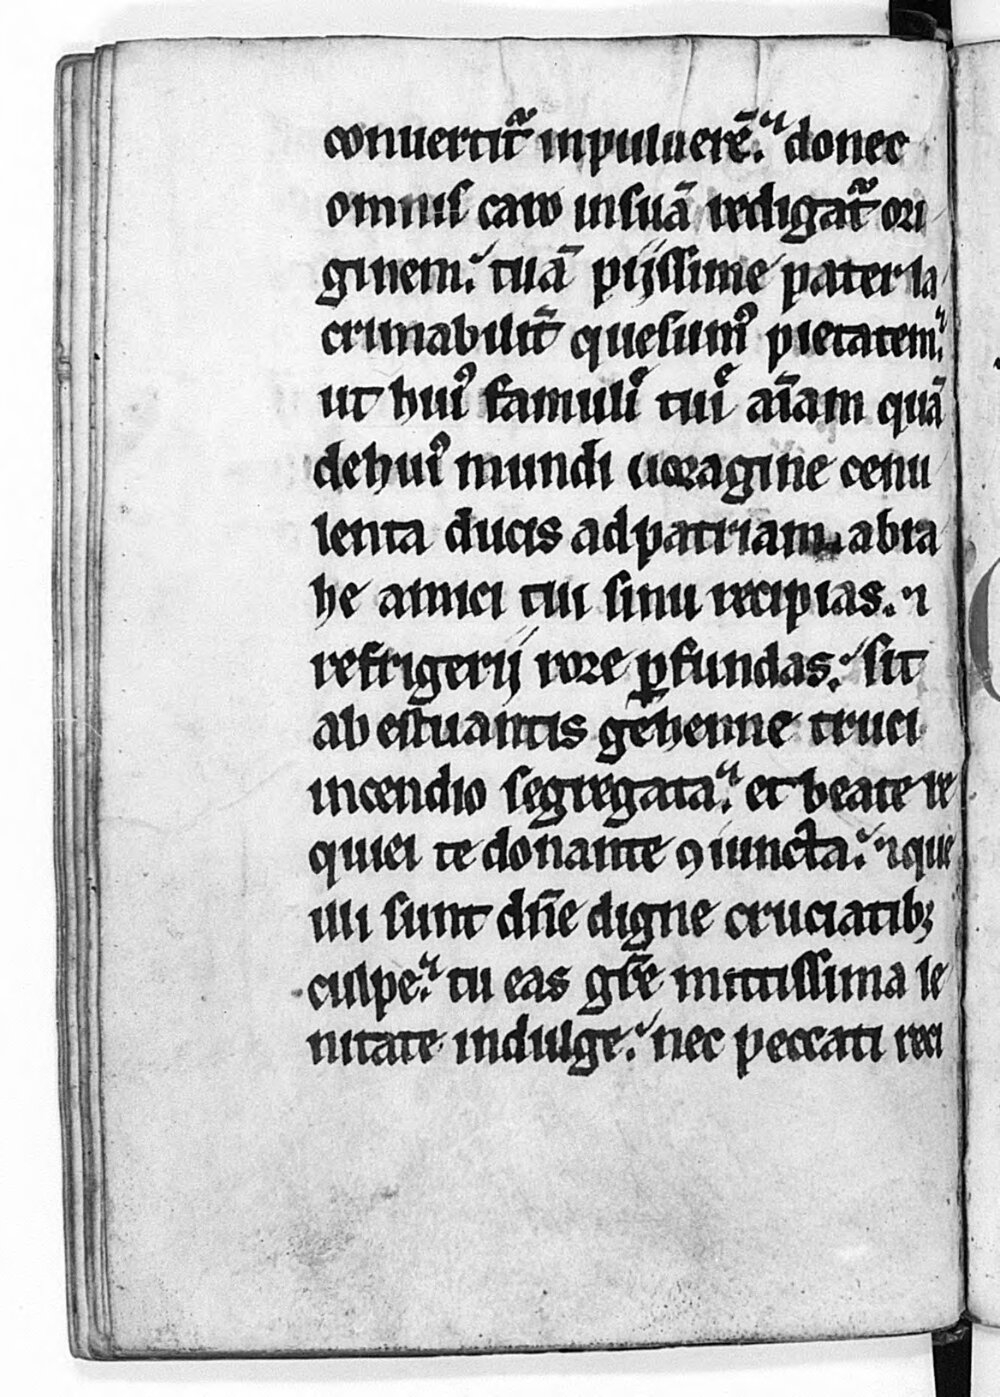 conuertit᷑ inpuluerē. donec
omnis caro insuā redigat᷑ ori
ginem. tuā pijssime pater la
crimabilit̄ quesumꝰ pietatem.
ut huiꝰ famuli͛ tui͛ aīam quā
dehuiꝰ mundi uoragine cenu
lenta ducis adpatriam. abra
he amici tui sinu recipias. ⁊
refrigerij rore ꝑfundas. sit
ab estuantis gehenne truci
incendio segregata. et beate re
quiei te donante ꝯiuncta. ⁊ que
illi sunt dn̄e digne cruciatibꝫ
culpe. tu eas gr̄e mittissima le
nitate indulge. nec peccati reci